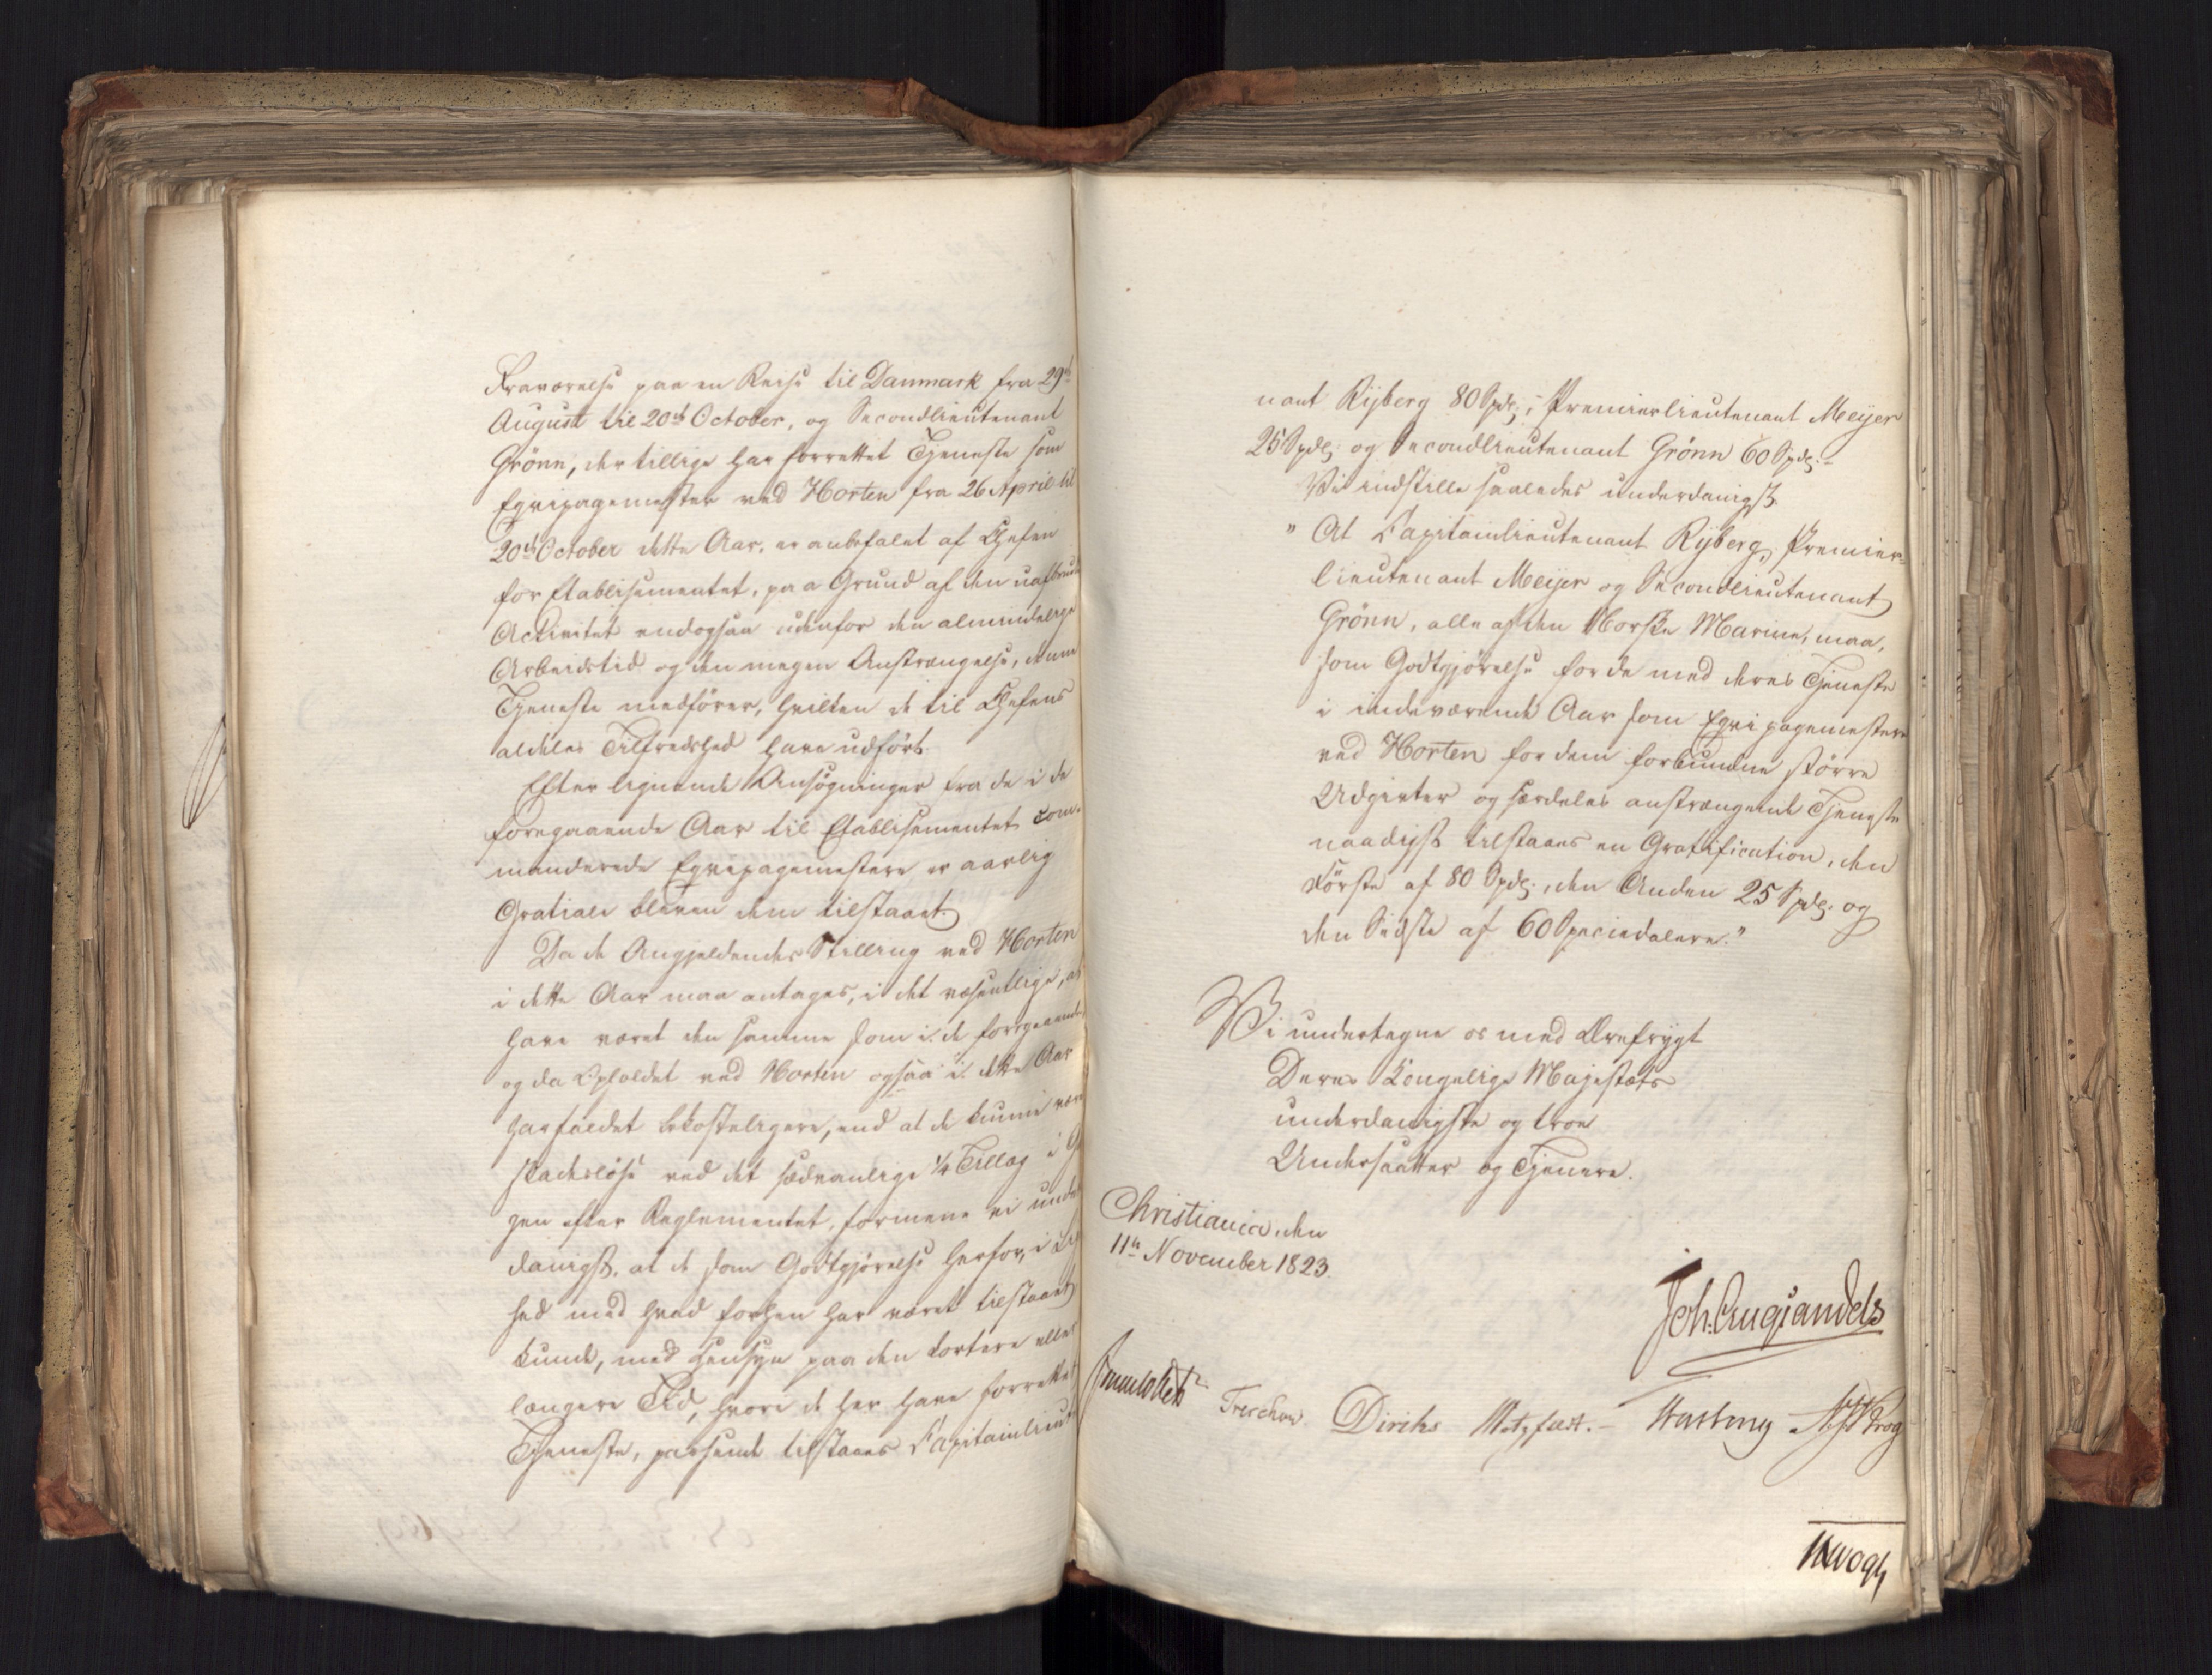 Fraværelse paa en Reise til Danmark fra 29de
August til 20de October, og Secondlieutenant
Grönn, der tillige har forrettet Tjeneste som
Eqvipagemester ved Horten fra 26 April til
20de October dette Aar, er anbefalet af Chefen
for Etablissementet, paa Grund af den uafbrudte
Activitet endogsaa udenfor den almindelige
Arbeidstid og den megen Anstrængelse, denne
Tjeneste medförer, hvilken de til Chefens
aldeles Tilfredshed have udfört.
Efter lignende Ansögninger fra de i de
foregaaende Aar til Etablissementet com-
manderede Eqvipagemestere er aarlig
Gratiale bleven dem tilstaaet.
Da de Angjeldendes Stilling ved Horten
i dette Aar maa antages, i det væsentlige, at
have været den samme som i de foregaaende,
og da Opholdet ved Horten ogsaa i dette Aar
har faldet bekosteligere, end at de kunne være
skadeslöse ved det sædvanlige 1/4 Tillæg i
gen efter Reglementet, formene vi under
danigst, at de som Godtgjörelse herfor, i Lig
hed med hvad forhen har været tilstaaet,
kunde, med Hensyn paa den kortere eller
længere Tid, hvori de her have forrettet
Tjeneste, passende tilstaaes Capitainlieute
nant Rÿberg 80 Spdlr, Premierlieutenant Meÿer
25 Spdlr. og Secondlieutenant Grönn 60 Spdlr.-
Vi indstille saaledes underdanigst
" At Capitainlieutenant Rÿberg, Premier-
lieutenant Meÿer og Secondlieutenant
Grönn, alle af den Norske Marine, maa,
som Godtgjörelse for de med deres Tjeneste
i indeværende Aar som Eqvipagemestere
ved Horten for dem forbundne större
Udgivter og særdeles anstrængende Tjeneste
naadigst tilstaaes en Gratification, den
Förste af 80 Spdlr., den Anden 25 Spdlr. og
den Sidste af 60 Speciedalere."
Vi undertegne os med Ærefrygt
Deres Kongelige Majestæts
underdanigste og troe
Undersaatter og Tjenere.
Christiania, den
11te November 1823.
Joh: Aug: Sandels
Sommerfeldt Treschow Diriks Motzfeldt.- Fasting Krog
Hvoogh